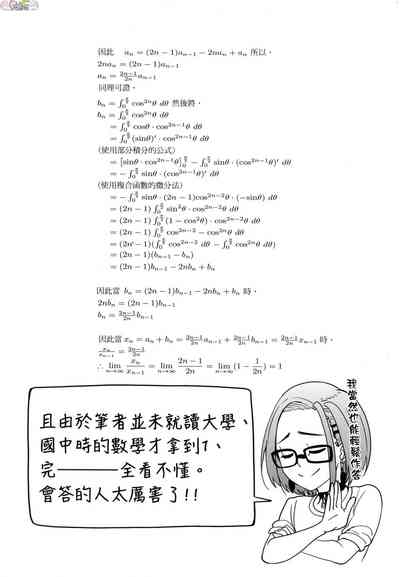 因此 aₙ = (2n − 1)aₙ₋₁ − 2naₙ + aₙ 所以,
2naₙ = (2n − 1)aₙ₋₁
aₙ = (2n−1)/2n aₙ₋₁
同理可證,
bₙ = ∫₀^(π/2) cos²ⁿθ dθ 然後將,
= ∫₀^(π/2) cosθ · cos²ⁿ⁻¹θ dθ
= ∫₀^(π/2) (sinθ)′ · cos²ⁿ⁻¹θ dθ
(使用部分積分的公式)
= [sinθ · cos²ⁿ⁻¹θ]₀^(π/2) − ∫₀^(π/2) sinθ · (cos²ⁿ⁻¹θ)′ dθ
= −∫₀^(π/2) sinθ · (cos²ⁿ⁻¹θ)′ dθ
(使用複合函數的微分法)
= −∫₀^(π/2) sinθ · (2n − 1)cos²ⁿ⁻²θ · (−sinθ) dθ
= (2n − 1) ∫₀^(π/2) sin²θ · cos²ⁿ⁻²θ dθ
= (2n − 1) ∫₀^(π/2) (1 − cos²θ) · cos²ⁿ⁻²θ dθ
= (2n − 1) ∫₀^(π/2) cos²ⁿ⁻² − cos²ⁿθ dθ
= (2n − 1)(∫₀^(π/2) cos²ⁿ⁻² dθ − ∫₀^(π/2) cos²ⁿθ dθ)
= (2n − 1)(bₙ₋₁ − bₙ)
= (2n − 1)bₙ₋₁ − 2nbₙ + bₙ
因此當 bₙ = (2n − 1)bₙ₋₁ − 2nbₙ + bₙ 時,
2nbₙ = (2n − 1)bₙ₋₁
bₙ = (2n−1)/2n bₙ₋₁
因此當 xₙ = aₙ + bₙ = (2n−1)/2n aₙ₋₁ + (2n−1)/2n bₙ₋₁ = (2n−1)/2n xₙ₋₁ 時,
xₙ/xₙ₋₁ = (2n−1)/2n
∴ lim n→∞ xₙ/xₙ₋₁ = lim n→∞ (2n − 1)/2n = lim n→∞ (1 − 1/2n) = 1
我當然也能輕鬆作答
且由於筆者並未就讀大學、
國中時的數學才拿到1、
完————全看不懂。
會答的人太厲害了!!